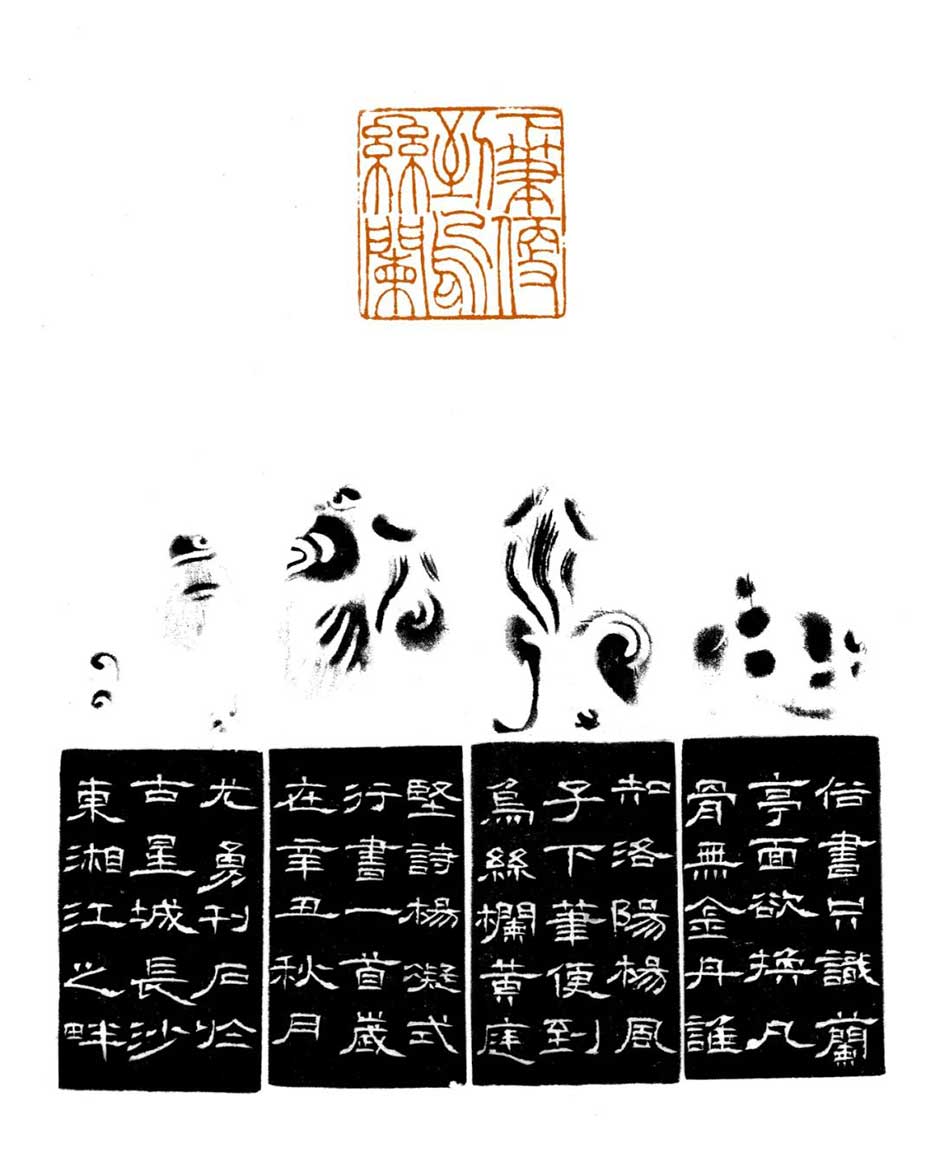 下筆便
到烏
絲闌
俗書只識蘭
亭面欲換凡
骨無金丹誰
知洛陽楊風
子下筆便到
烏絲欄黄庭
堅詩楊凝式
行書一首歲
在辛丑秋月
尤勇刊石於
古星城長沙
東湘江之畔